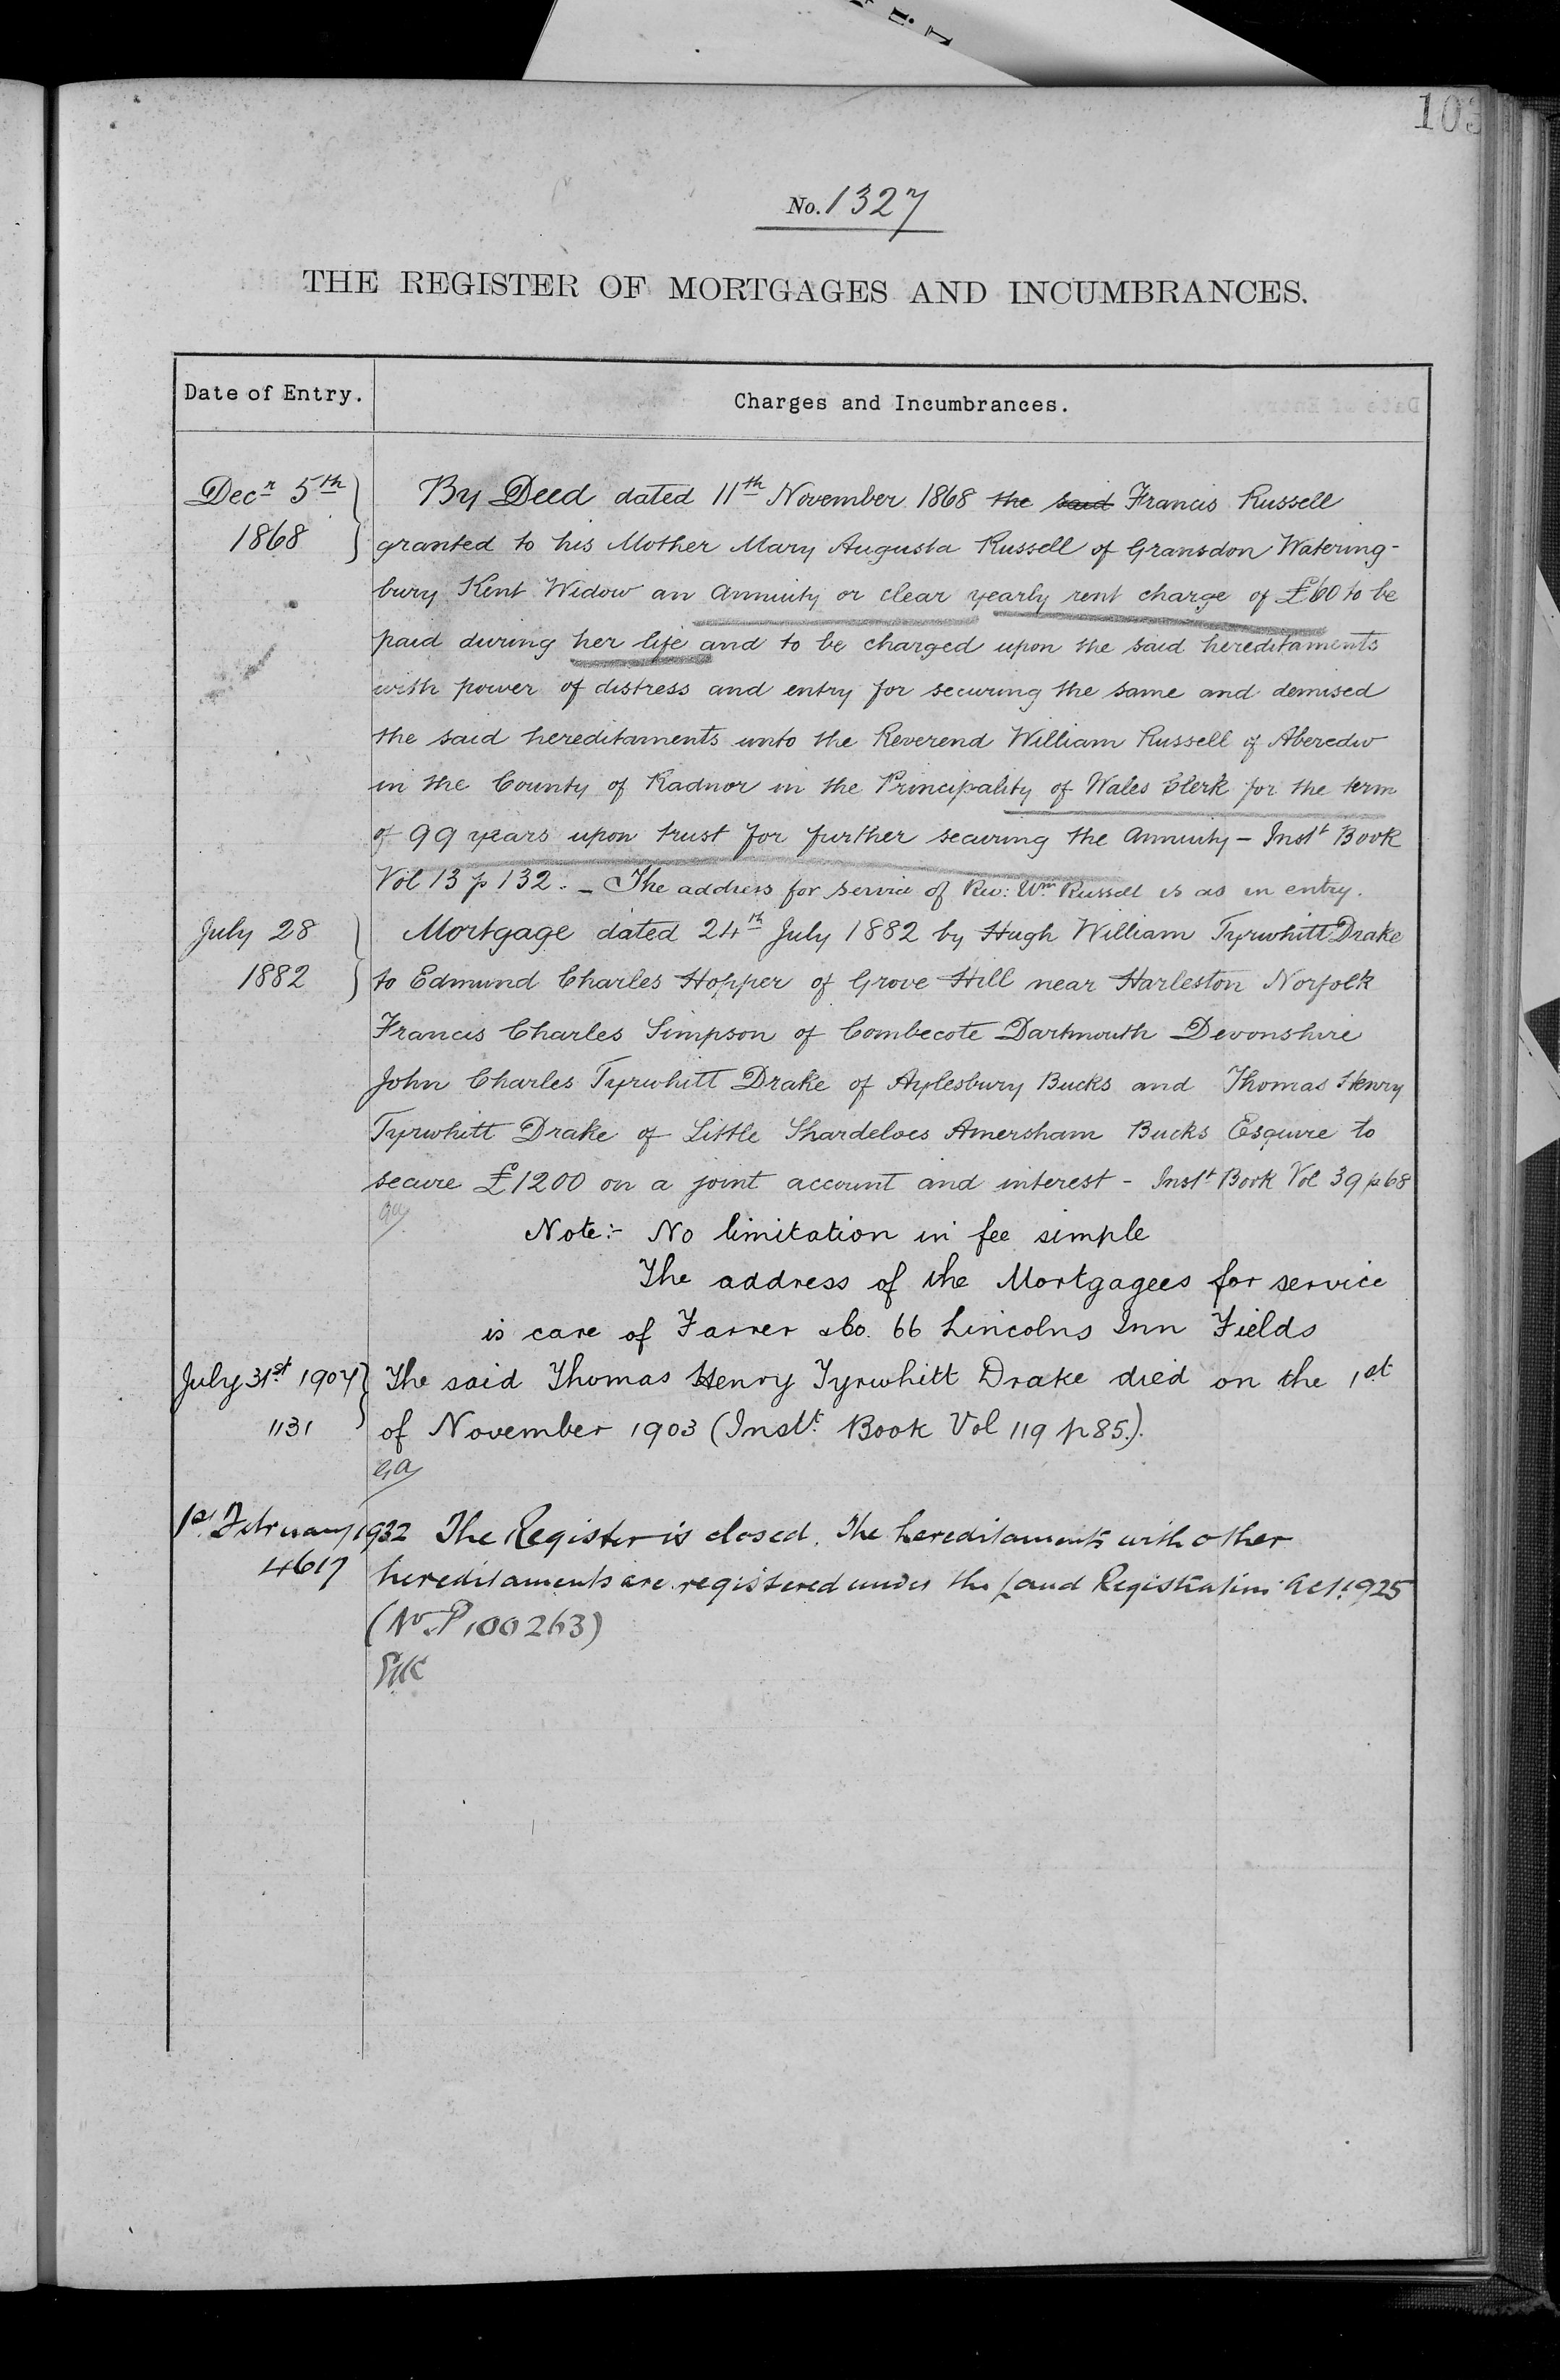 103
No. 1327
THE REGISTER OF MORTGAGES AND INCUMBRANCES.
Date of Entry.
Charges and Incumbrances.
Decr 5th
1868
By Deed dated 11th November 1868 the said Francis Russell
granted to his Mother Mary Augusta Russell of Gransdon Watering-
bury Kent Widow an annuity or clear yearly rent charge of £60 to be
paid during her life and to be charged upon the said hereditaments
with power of distress and entry for securing the same and demised
the said hereditaments unto the Reverend William Russell of Aberedw
in the County of Radnor in the Principality of Wales Clerk for the term
of 99 years upon trust for further securing the annuity - Inst Book
Vol 13 p 132. - The address for service of Rev: Wm Russell is as in entry.
July 28
1882
Mortgage dated 24th July 1882 by Hugh William Tyrwhitt Drake
to Edmund Charles Hopper of Grove Hill near Harleston Norfolk
Francis Charles Simpson of Combecote Dartmouth Devonshire
John Charles Tyrwhitt Drake of Aylesbury Bucks and Thomas Henry
Tyrwhitt Drake of Little Shardeloes Amersham Bucks Esquire to
secure £1200 on a joint account and interest - Inst Book Vol 39 p 68
Note:- No limitation in fee simple
The address of the Mortgagees for service
is care of Farrer & Co. 66 Lincolns Inn Fields
July 31st 1907
1131
The said Thomas Henry Tyrwhitt Drake died on the 1st
of November 1903 (Instt Book Vol 119 p 85.).
1st February 1932 The Register is closed. The hereditaments with other
4617
hereditaments are registered under the Land Registration Act 1925
(No P100263)